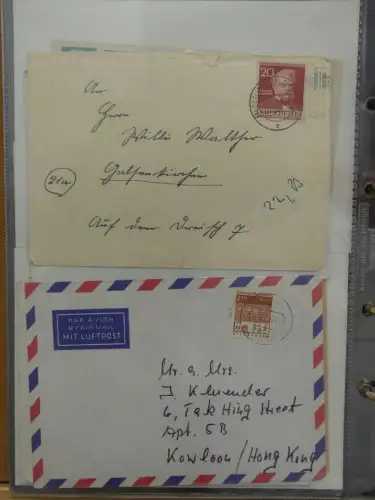 20
An
Herrn
Willi Walther
21a
Gelsenkirchen
Auf dem 7
PAR AVION
BY AIR MAIL
MIT LUFTPOST
Mr. a. Mrs.
J. Kluender
6, Tak Hing Street
Apt. 5B
Kowloon / Hong Kong